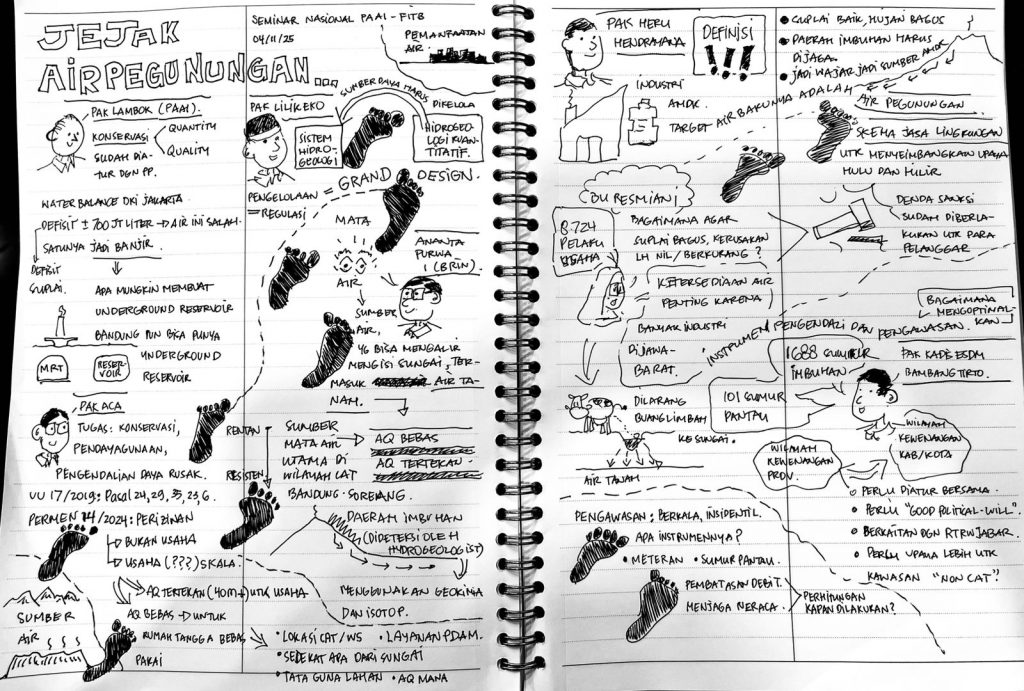 JEJAK
AIR PEGUNUNGAN...
SEMINAR NASIONAL PAAI - FITB
04/11/25
PEMANFAATAN
AIR.
PAK LAMBOK (PAAI).
KONSERVASI
QUANTITY
QUALITY
SUDAH DIA-
TUR DGN PP.
WATER BALANCE DKI JAKARTA
DEFISIT ± 700 JT LITER → AIR INI SALAH-
SATUNYA JADI BANJIR.
DEFISIT
SUPLAI.
APA MUNGKIN MEMBUAT
UNDERGROUND RESERVOIR
BANDUNG PUN BISA PUNYA
UNDERGROUND
RESERVOIR
MRT
RESER-
VOIR
PAK ACA
TUGAS: KONSERVASI,
PENDAYAGUNAAN,
PENGENDALIAN DAYA RUSAK.
UU 17/2019: Pasal 24, 29, 35, 23, 6.
PERMEN 14/2024: PERIZINAN
BUKAN USAHA
USAHA (???) SKALA.
AQ TERTEKAN (40M+) UTK USAHA
AQ BEBAS → UNTUK
RUMAH TANGGA BEBAS
PAKAI
SUMBER
AIR
PAK LILIK EKO
SUMBER DAYA HARUS
DIKELOLA
SISTEM
HIDRO-
GEOLOGI
HIDROGEO-
LOGI KUAN-
TITATIF.
PENGELOLAAN = GRAND DESIGN.
= REGULASI
MATA
AIR
SUMBER
AIR,
ANANTA
PURWA
(BRIN).
YG BISA MENGALIR
MENGISI SUNGAI, TER-
MASUK AIR TA-
NAH.
RENTAN
RESISTEN
SUMBER
MATA AIR
UTAMA DI
WILAYAH CAT
BANDUNG - SOREANG.
AQ BEBAS
AQ TERTEKAN
DAERAH IMBUHAN
(DIDETEKSI OLEH
HYDROGEOLOGIST)
MENGGUNAKAN GEOKIMIA
DAN ISOTOP.
• LOKASI CAT/WS
• LAYANAN PDAM.
• SEDEKAT APA DARI SUNGAI
• TATA GUNA LAHAN
• AQ MANA
PAK HERU
HENDRAYANA
DEFINISI
!!!
INDUSTRI
AMDK.
TARGET AIR BAKUNYA ADALAH
AIR PEGUNUNGAN
• SUPLAI BAIK, HUJAN BAGUS
• DAERAH IMBUHAN HARUS
DIJAGA.
• JADI WAJAR JADI SUMBER AMDK
SKEMA JASA LINGKUNGAN
UTK MENYEIMBANGKAN UPAYA
HULU DAN HILIR
BU RESMIANI
8.724
PELAKU
USAHA
BAGAIMANA AGAR
SUPLAI BAGUS, KERUSAKAN
LH NIL/BERKURANG?
DENDA SANKSI
SUDAH DIBERLA-
KUKAN UTK PARA
PELANGGAR
KETERSEDIAAN AIR
PENTING KARENA
BANYAK INDUSTRI
DI JAWA-
BARAT.
INSTRUMEN PENGENDALI DAN PENGAWASAN.
BAGAIMANA
MENGOPTIMAL-
KAN
1688 SUMUR
IMBUHAN
101 SUMUR
PANTAU
PAK KADIS ESDM
BAMBANG TIRTO.
DILARANG
BUANG LIMBAH
KE SUNGAI.
AIR TANAH
WILAYAH
KEWENANGAN
PROV.
WILAYAH
KEWENANGAN
KAB/KOTA
○ PERLU DIATUR BERSAMA.
○ PERLU "GOOD POLITICAL-WILL".
○ BERKAITAN DGN RTRW JABAR.
○ PERLU UPAYA LEBIH UTK
KAWASAN "NON CAT"?
PENGAWASAN: BERKALA, INSIDENTIL.
APA INSTRUMENNYA?
• METERAN
• SUMUR PANTAU.
PEMBATASAN DEBIT.
MENJAGA NERACA.
PERHITUNGAN
KAPAN DILAKUKAN?